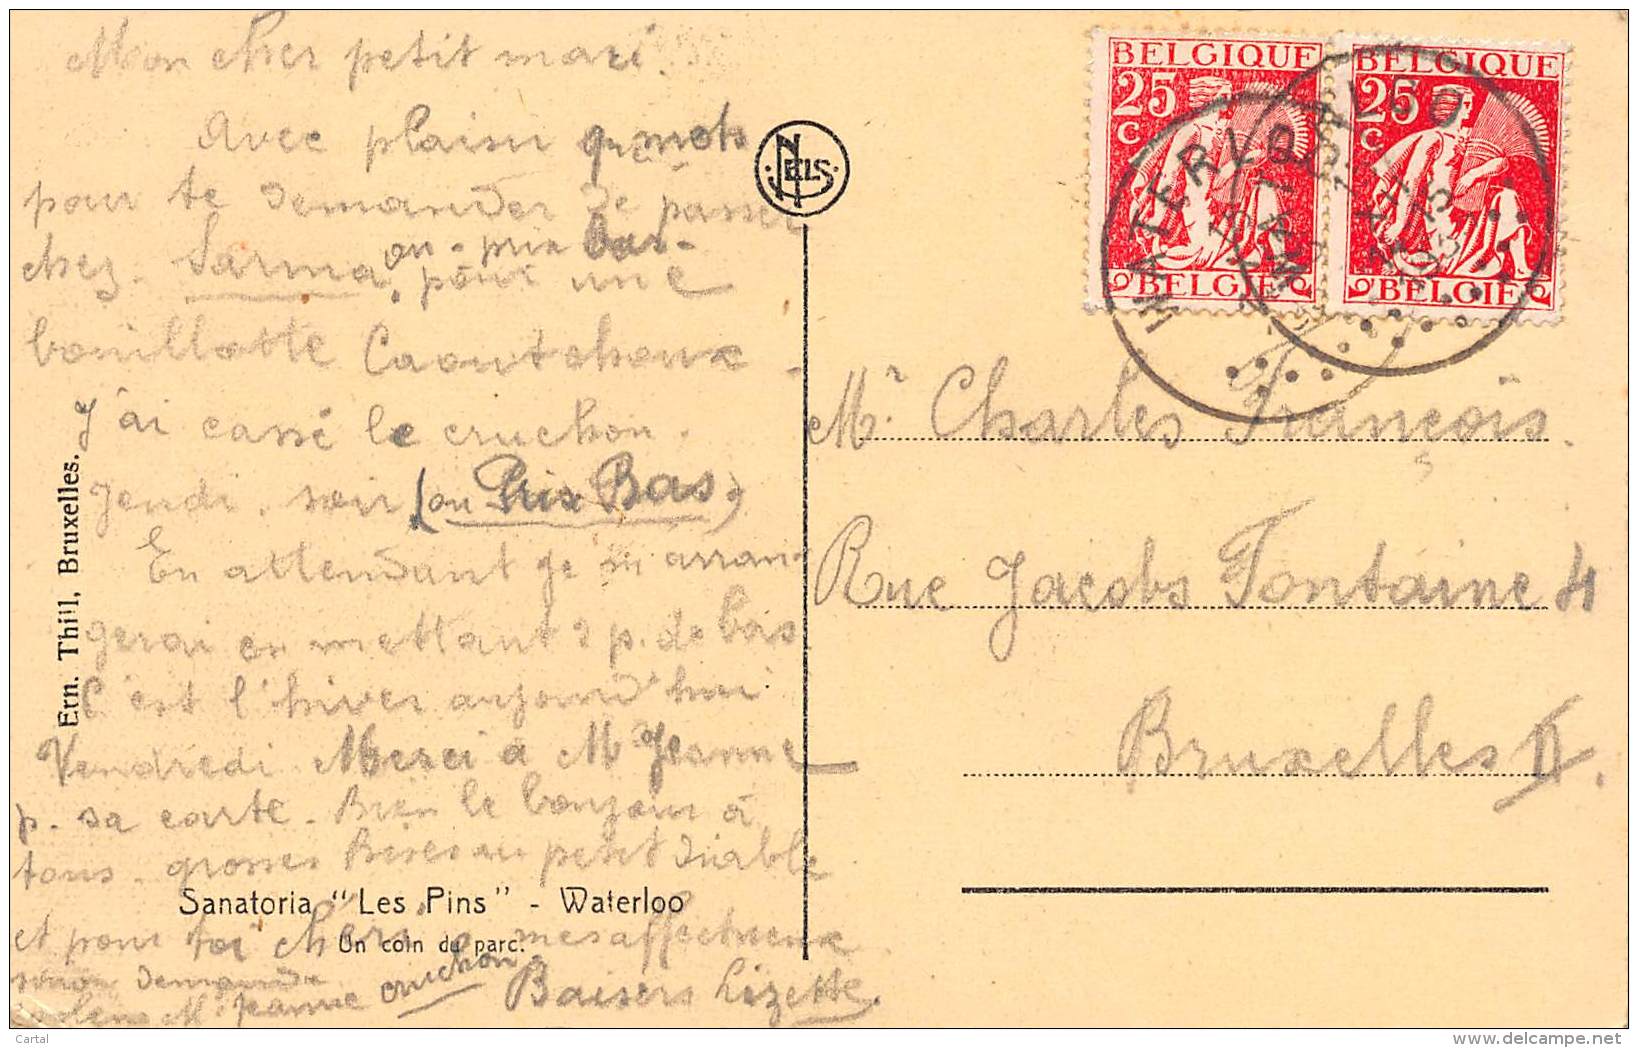 Mon cher petit mari.
Avec plaisir qques mots
pour te demander de passer
chez Sarma, ou prix bas - pour une
bouillotte Caoutchoux -
J'ai cassé le cruchon.
Jeudi soir (ou Prix Bas)
En attendant je m'arran-
gerai en mettant 2 p. de bas
C'est l'hiver aujourd'hui
Vendredi Merci à M Jeanne
p. sa carte. Bien le bonjour à
tous. grosses Bises au petit Diable
et pour toi chéri mes affectueux
Baisers Lizette.
sinon demande
M. Jeanne cruchon
Sanatoria "Les Pins" - Waterloo
Un coin du parc.
Ern. Thill, Bruxelles.
NELS
BELGIQUE
25 c
BELGIE
BELGIQUE
25 c
BELGIE
WATERLOO
WATERLOO
Mr Charles François.
Rue Jacobs Fontaine 4
Bruxelles II.
Cartal
www.delcampe.net